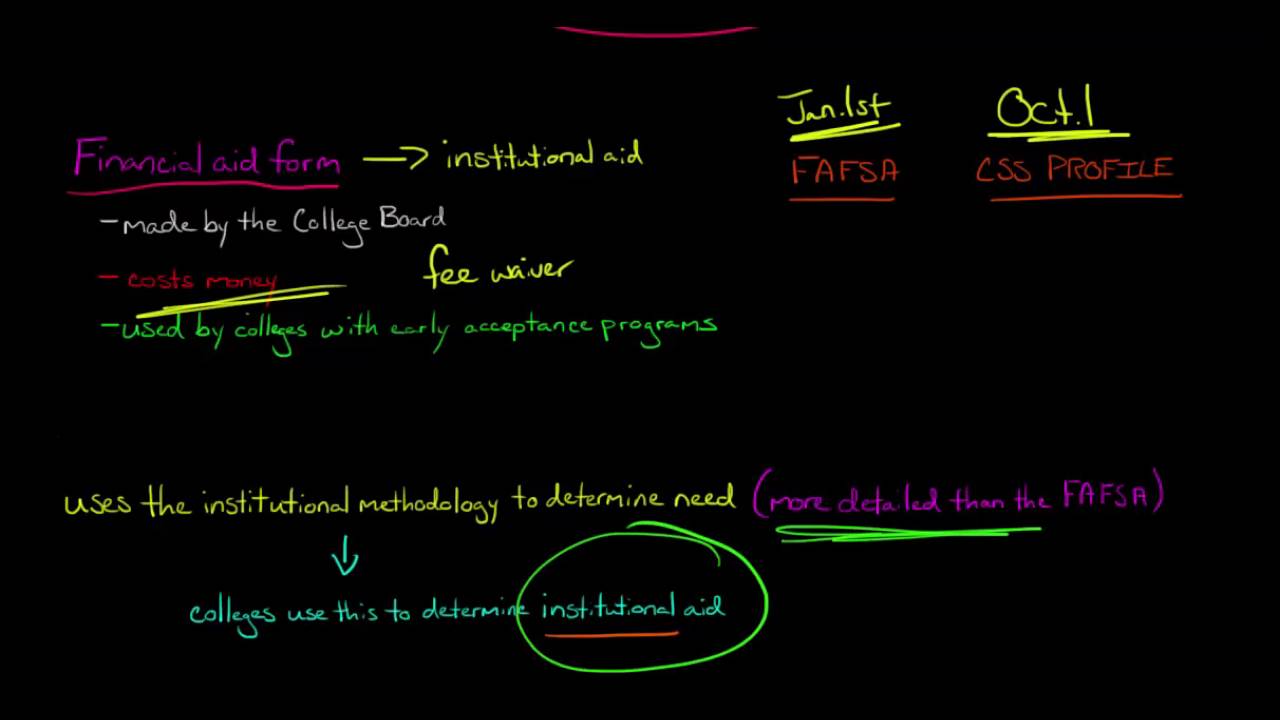 Jan.1st Oct.1
FAFSA CSS PROFILE
Financial aid form → institutional aid
- made by the College Board
- costs money fee waiver
- used by colleges with early acceptance programs
uses the institutional methodology to determine need (more detailed than the FAFSA)
↓
colleges use this to determine institutional aid